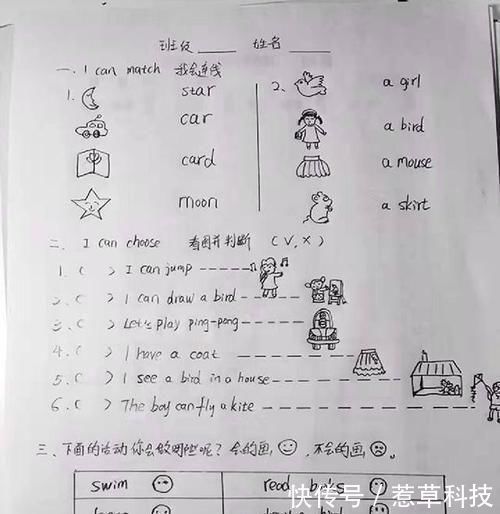 班级____ 姓名____
一、I can match 我会连线
1. star 2、 a girl
car a bird
card a mouse
moon a skirt
二、 I can choose 看图并判断 (√,×)
1.( ) I can jump
2.( ) I can draw a bird
3.( ) Let's play ping-pong
4.( ) I have a coat
5.( ) I see a bird in a house
6.( ) The boy can fly a kite
三、下面的活动你会做哪些呢? 会的画, 不会的画
swim read books
快传号 / 惹草科技